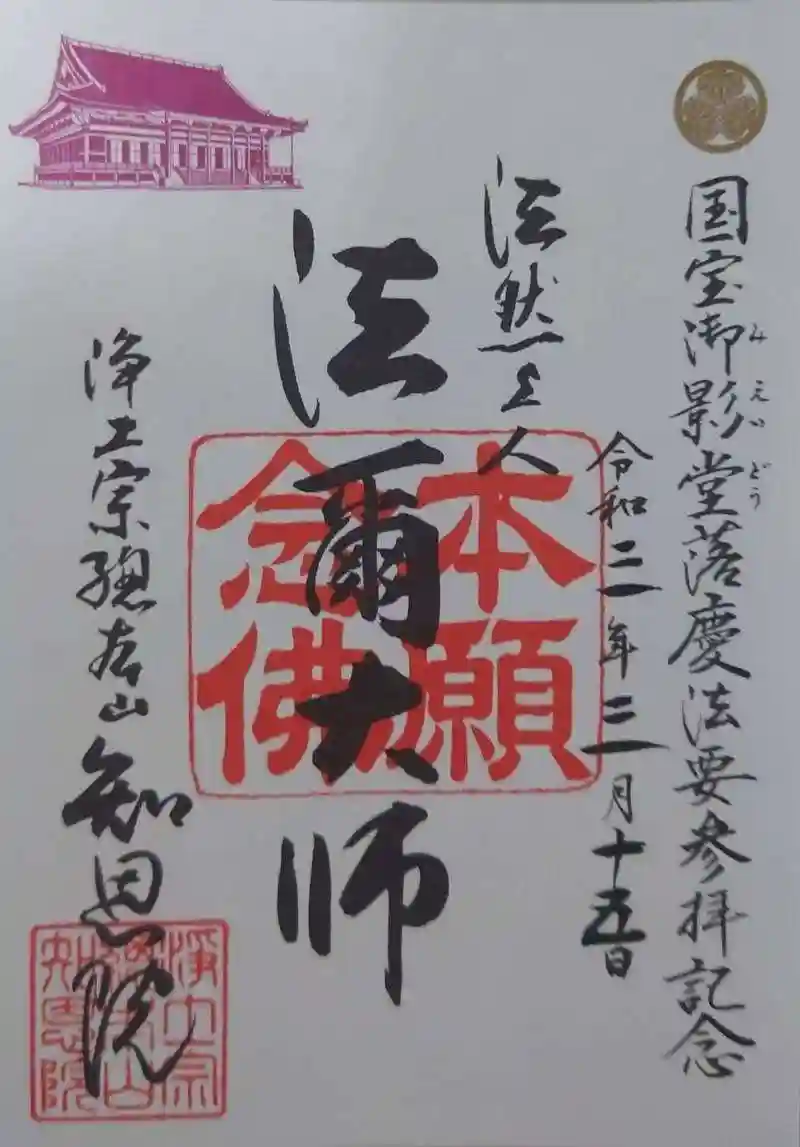 国宝御影堂落慶法要参拝記念
みえいどう
令和三年三月十五日
法然上人
法爾大師
本願
念佛
浄土宗總本山知恩院
淨土宗
總本山
知恩院